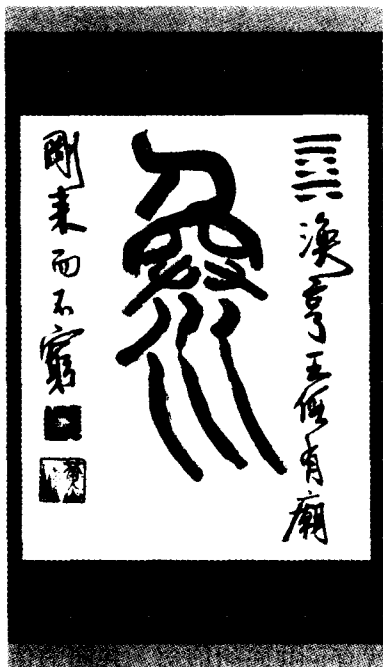 ䷺渙亨王假有廟
渙
剛来而不窮